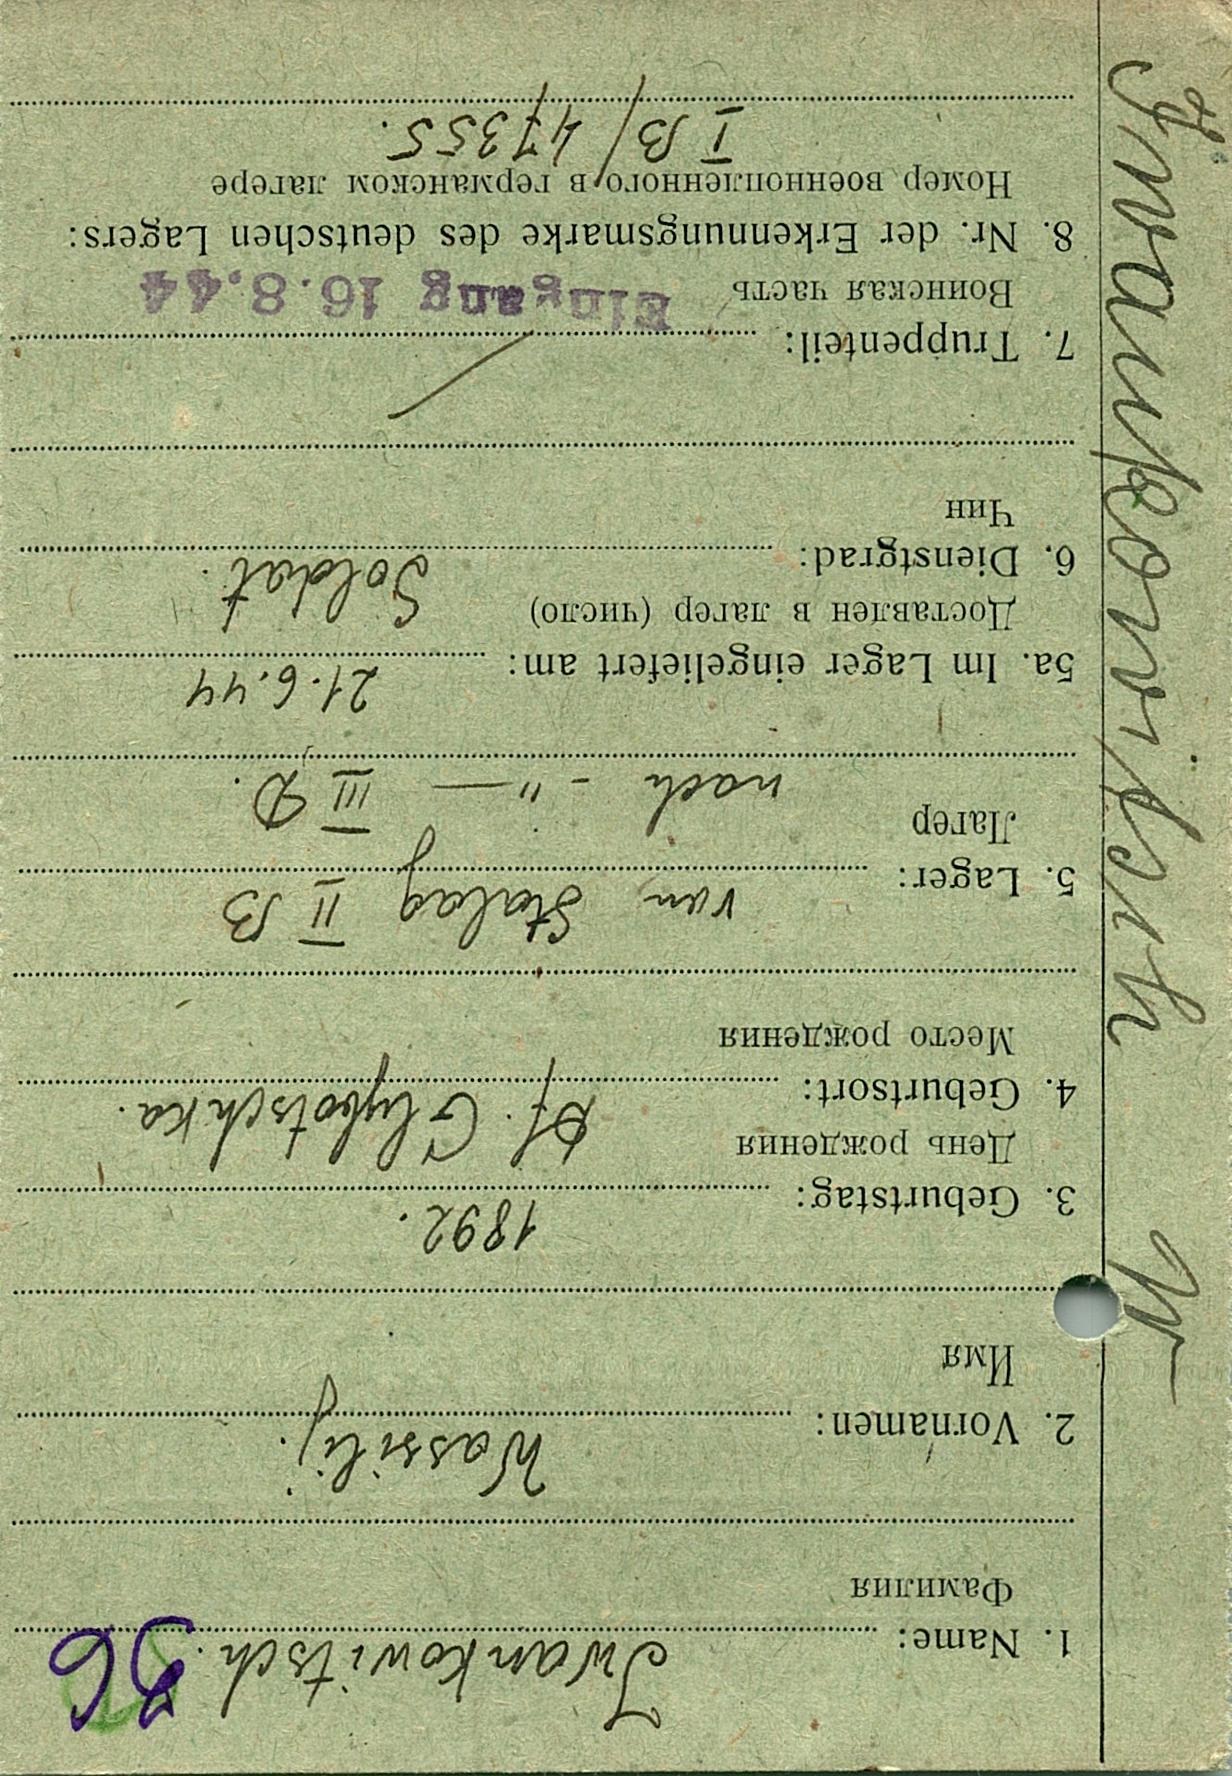 Iwankowitsch W
56
1. Name: Iwankowitsch.
Фамилия
2. Vornamen: Wassilij.
Имя
3. Geburtstag: 1892.
День рождения
4. Geburtsort: Df. Glybotschka.
Место рождения
5. Lager: von Stalag II B
Лагер nach -"- III D.
5a. Im Lager eingeliefert am: 21.6.44
Доставлен в лагер (число)
6. Dienstgrad: Soldat.
Чин
7. Truppenteil:
Воинская часть
Eingang 16.8.44
8. Nr. der Erkennungsmarke des deutschen Lagers:
Номер военнопленного в германском лагере
I B/47355.